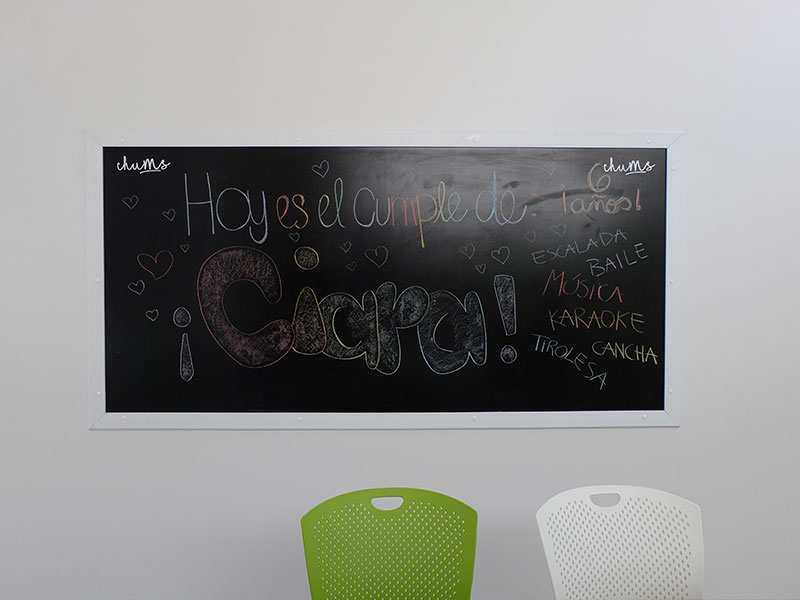 chums
chums
Hoy es el cumple de:
¡Ciara!
6
¡años!
ESCALADA
BAILE
MÚSICA
KARAOKE
CANCHA
TIROLESA